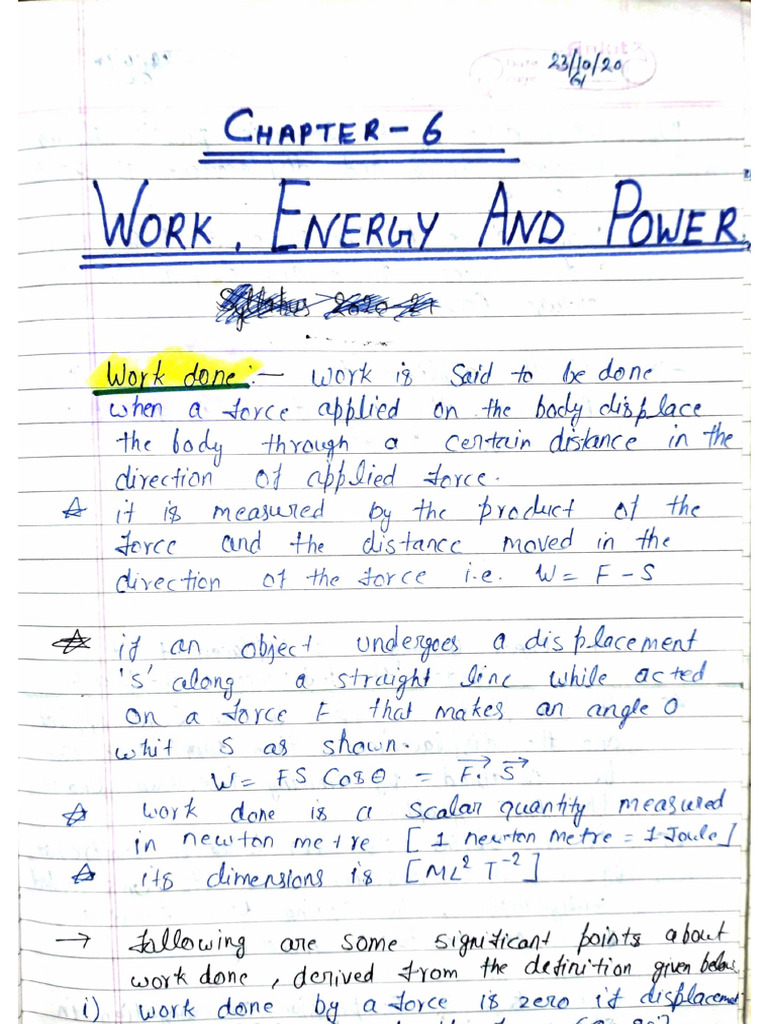 23/10/20
CHAPTER - 6
WORK, ENERGY AND POWER
Work done :- work is said to be done
when a force applied on the body displace
the body through a certain distance in the
direction of applied force.
☆ it is measured by the product of the
force and the distance moved in the
direction of the force i.e. W = F - S
☆ if an object undergoes a displacement
's' along a straight line while acted
on a force F that makes an angle O
whit S as shown.
W = FS Cosθ = F⃗. S⃗
☆ work done is a scalar quantity measured
in newton metre [1 newton metre = 1 Joule]
☆ its dimensions is [ML² T⁻²]
→ following are some significant points about
work done, derived from the definition given below
i) work done by a force is zero if displacement